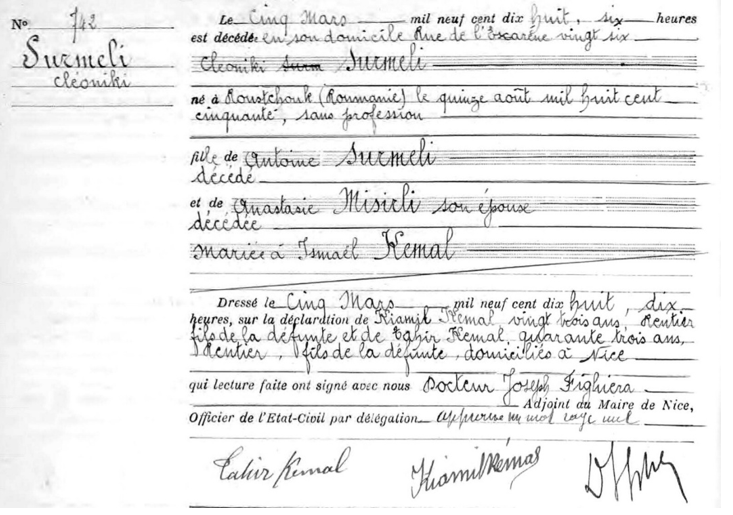 N° 742
Surmeli
cléoniki
Le Cinq Mars mil neuf cent dix huit, six heures
est décédé en son domicile Rue de l'Escarène vingt six
Cléoniki Surm Surmeli
né à Roustchouk (Roumanie) le quinze août mil huit cent
cinquante, sans profession
fille de Antoine Surmeli
décédé
et de Anastasie Misirli son épouse
décédée
mariée à Ismaël Kemal
Dressé le Cinq Mars mil neuf cent dix huit, dix
heures, sur la déclaration de Kiamil Kemal vingt trois ans, Rentier
fils de la défunte et de Tahir Kemal, quarante trois ans,
Rentier, fils de la défunte, domiciliés à Nice
qui lecture faite ont signé avec nous Docteur Joseph Fighiera
Adjoint du Maire de Nice,
Officier de l'Etat-Civil par délégation mot rayé nul
Tahir Kemal
Kiamil Kémal